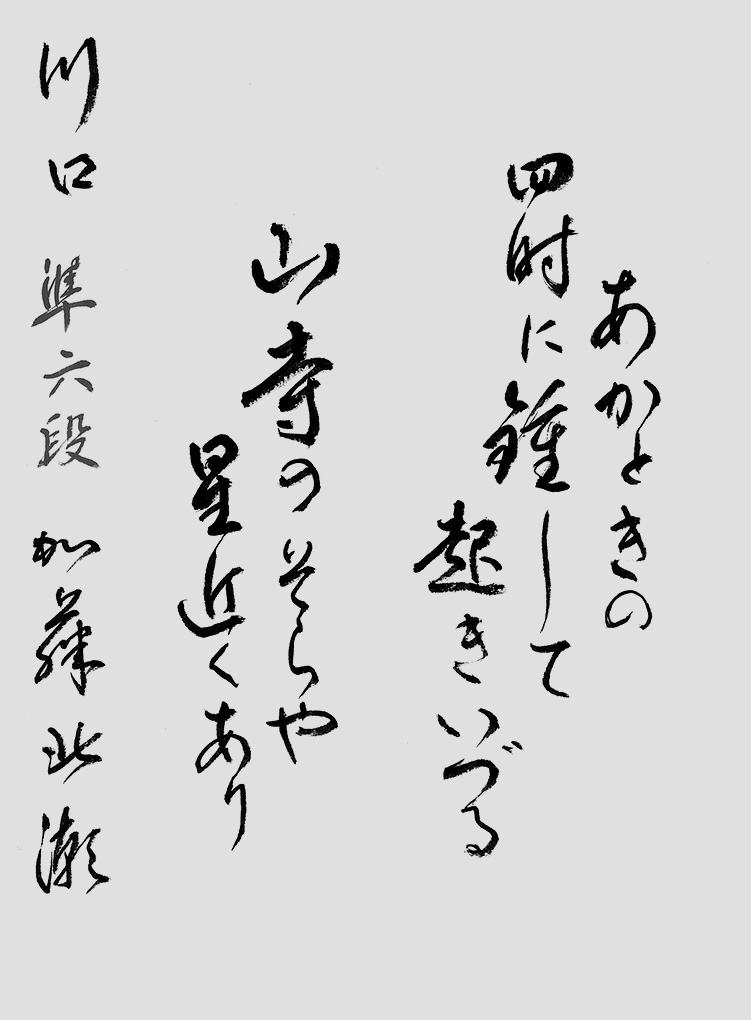 あかときの
四時に鐘して
起きいづる
山寺のそらや
星近くあり
川口 準六段 加藤北瀬